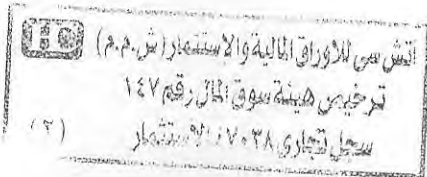 اتش سى للاوراق المالية والاستثمار (ش.م.م) HC
ترخيص هيئة سوق المال رقم ١٤٧
سجل تجارى ٧٠٣٨ استثمار (٢)